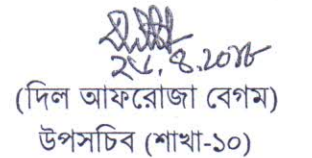 ২৫.৪.২০১৮
(দিল আফরোজা বেগম)
উপসচিব (শাখা-১০)